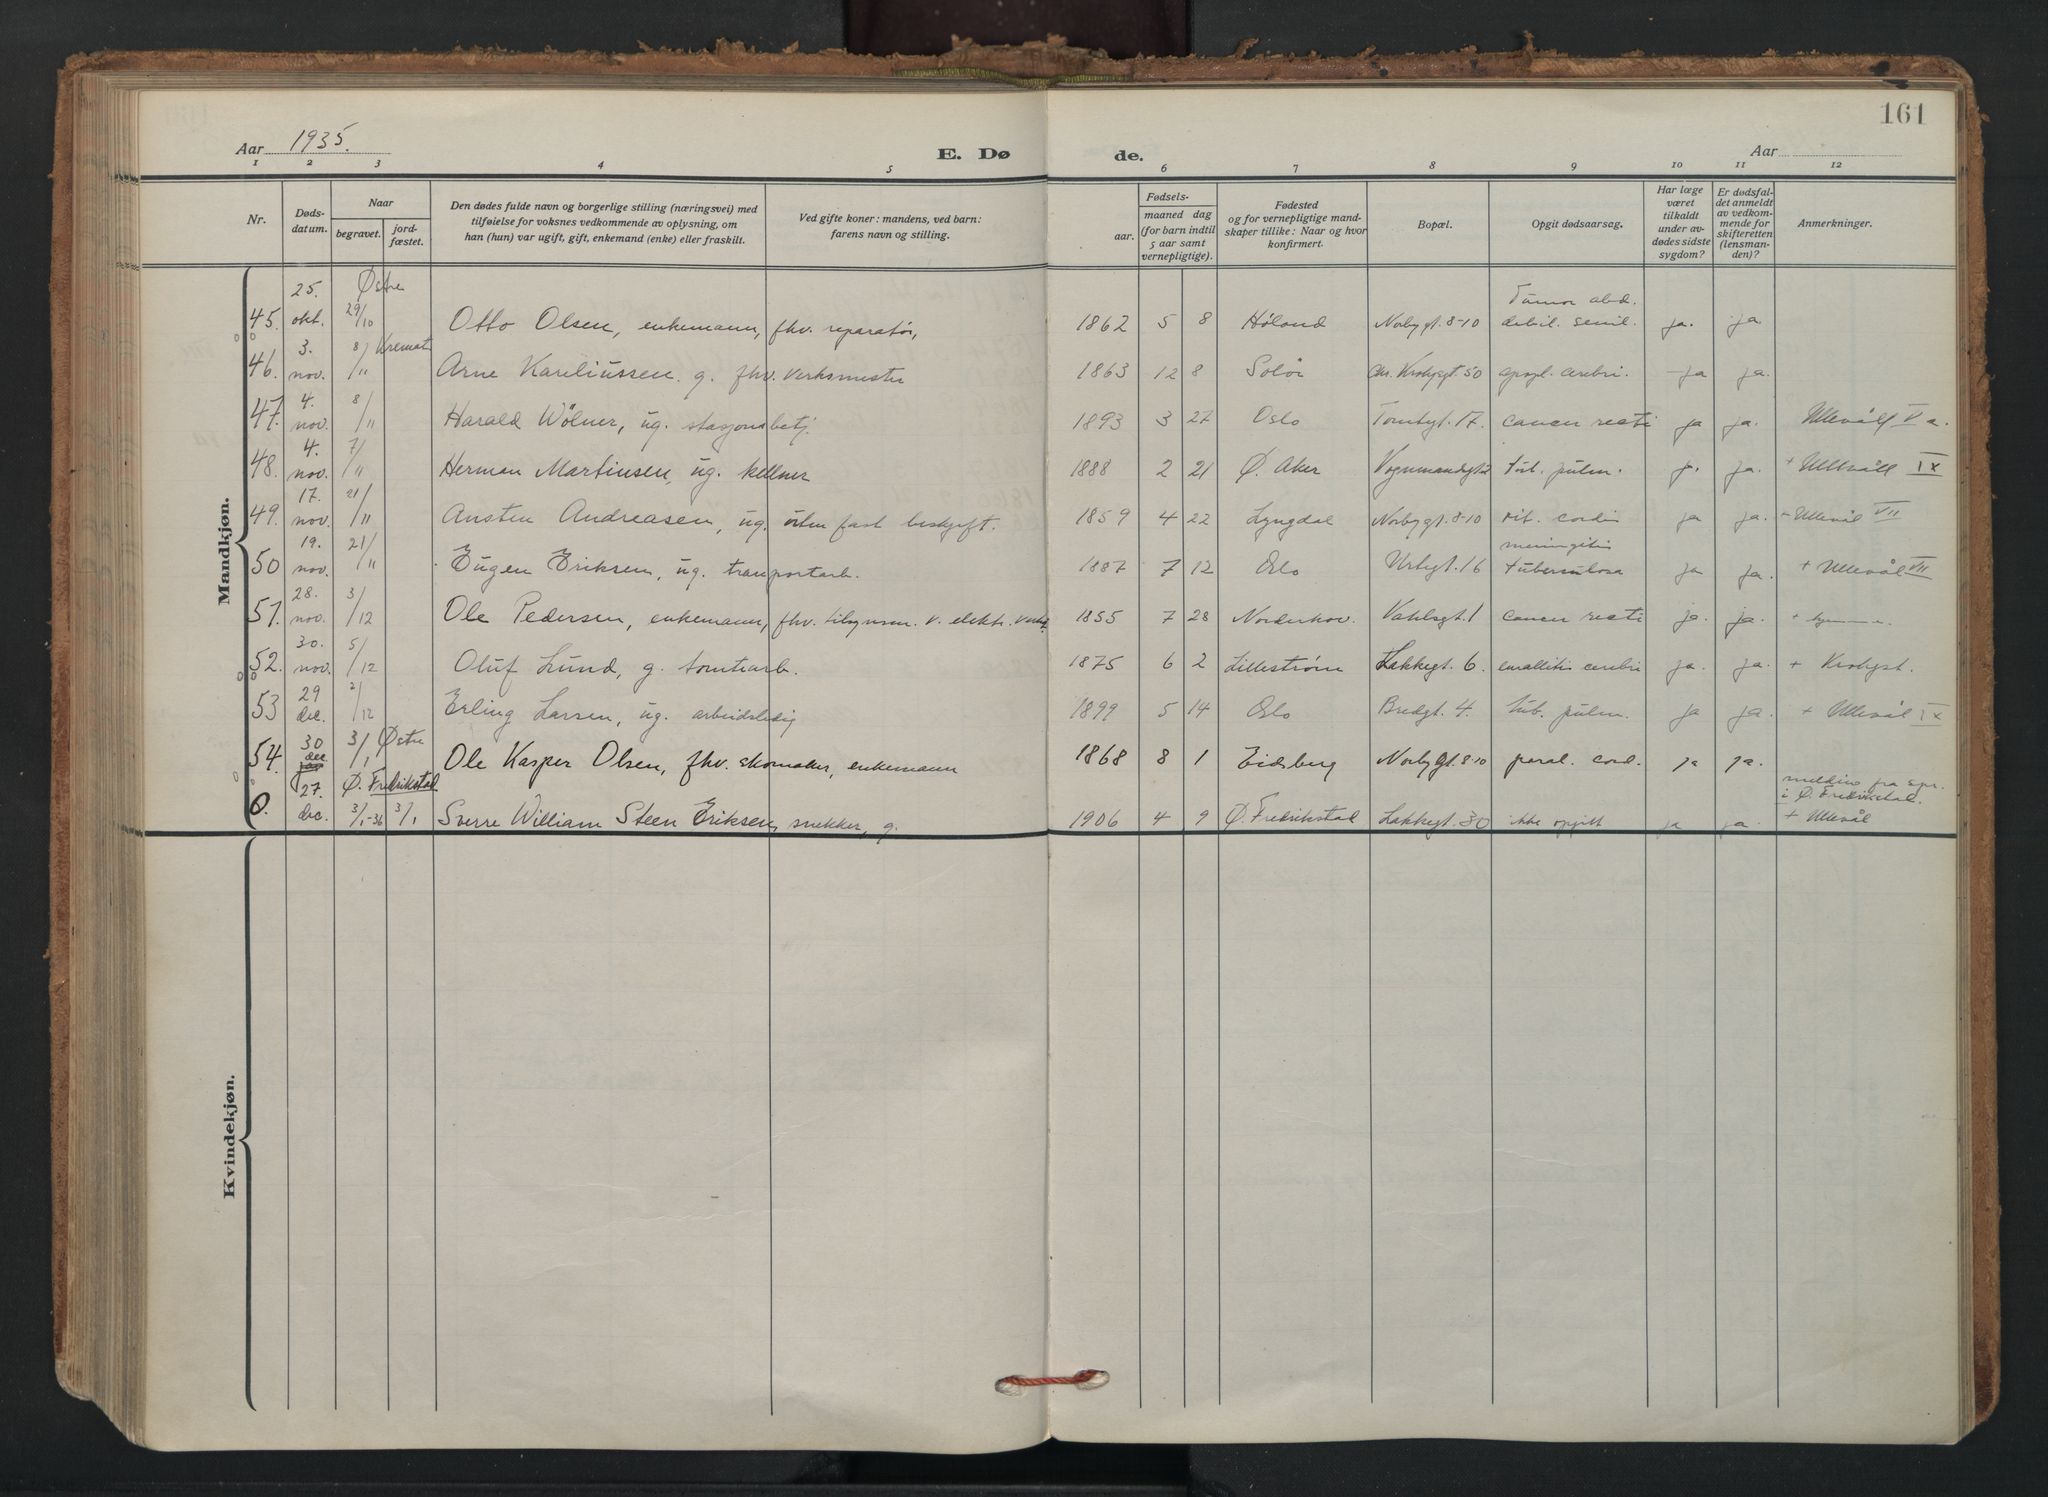 161
Aar 1935.
E. Døde.
Aar
1 2 3 4 5 6 7 8 9 10 11 12
Nr.
Døds-datum.
Naar
begravet.
jord-fæstet.
Den dødes fulde navn og borgerlige stilling (næringsvei) med
tilføielse for voksnes vedkommende av oplysning, om
han (hun) var ugift, gift, enkemand (enke) eller fraskilt.
Ved gifte koner: mandens, ved barn:
farens navn og stilling.
Fødsels-
aar.
maaned dag
(for barn indtil
5 aar samt
vernepligtige).
Fødested
og for vernepligtige mand-
skaper tillike: Naar og hvor
konfirmert.
Bopæl.
Opgit dødsaarsag.
Har læge
været
tilkaldt
under av-
dødes sidste
sygdom?
Er dødsfal-
det anmeldt
av vedkom-
mende for
skifteretten
(lensman-
den)?
Anmerkninger.
Mandkjøn.
45. 25. okt. 29/10 Østre Otto Olsen, enkemann, fhv. reparatör, 1862 5 8 Höland Norbygt. 8-10 Tumor abd. debil. senil. ja. ja.
46. 3. nov. 8/11 Kremat Arne Kareliussen. g. fhv. verksmester 1863 12 8 Solör Chr. Krohgsgt. 50 apopl. cerebri. ja ja.
47. 4. nov. 8/11 Harald Wölner, ug. stasjonsbetj. 1893 3 27 Oslo Tomtegt. 17. cancer recti ja ja. Ullevåll V a.
48. 4. nov. 7/11 Herman Martinsen, ug. kellner 1888 2 21 Ø. Aker Vognmandsgt 2 tub. pulm. ja. ja. + Ullevåll IX
49. 17. nov. 21/11 Ansten Andreasen, ug. uten fast beskjeft. 1859 4 22 Lyngdal Norbygt. 8-10 vit. cordis ja ja. + Ullevål VII
50 19. nov. 21/11 Eugen Eriksen, ug. transportarb. 1887 7 12 Oslo Urtegt. 16 meningitis tuberculosa ja ja. + Ullevål VII
51. 28. nov. 3/12 Ole Pedersen, enkemann, fhv. tilsynsm. v. elektr. verk. 1855 7 28 Norderhov. Vahlsgt. 1 cancer recti ja. ja. + hjemme.
52. 30. nov. 5/12 Oluf Lund, g. tomtearb. 1875 6 2 Lillestrøm Lakkegt. 6. cerebri ja. ja. + Krohgst.
53 29 dec. 2/12 Erling Larsen, ug. arbeidsledig 1899 5 14 Oslo Bredgt. 4. tub. pulm. ja ja. + Ullevål IX
54. 30 dec. 3/1 Østre Ole Kasper Olsen, fhv. skomaker, enkemann 1868 8 1 Eidsberg Norbygt. 8-10 paral. cord. ja ja.
0. 27. dec. 3/1-36 3/1 Ø. Fredrikstad Sverre William Steen Eriksen, snekker, g. 1906 4 9 Ø. Fredrikstad Lakkegt. 30 ikke opgitt ja ja. melding fra spr. i Ø. Fredrikstad. + Ullevål
Kvindekjøn.